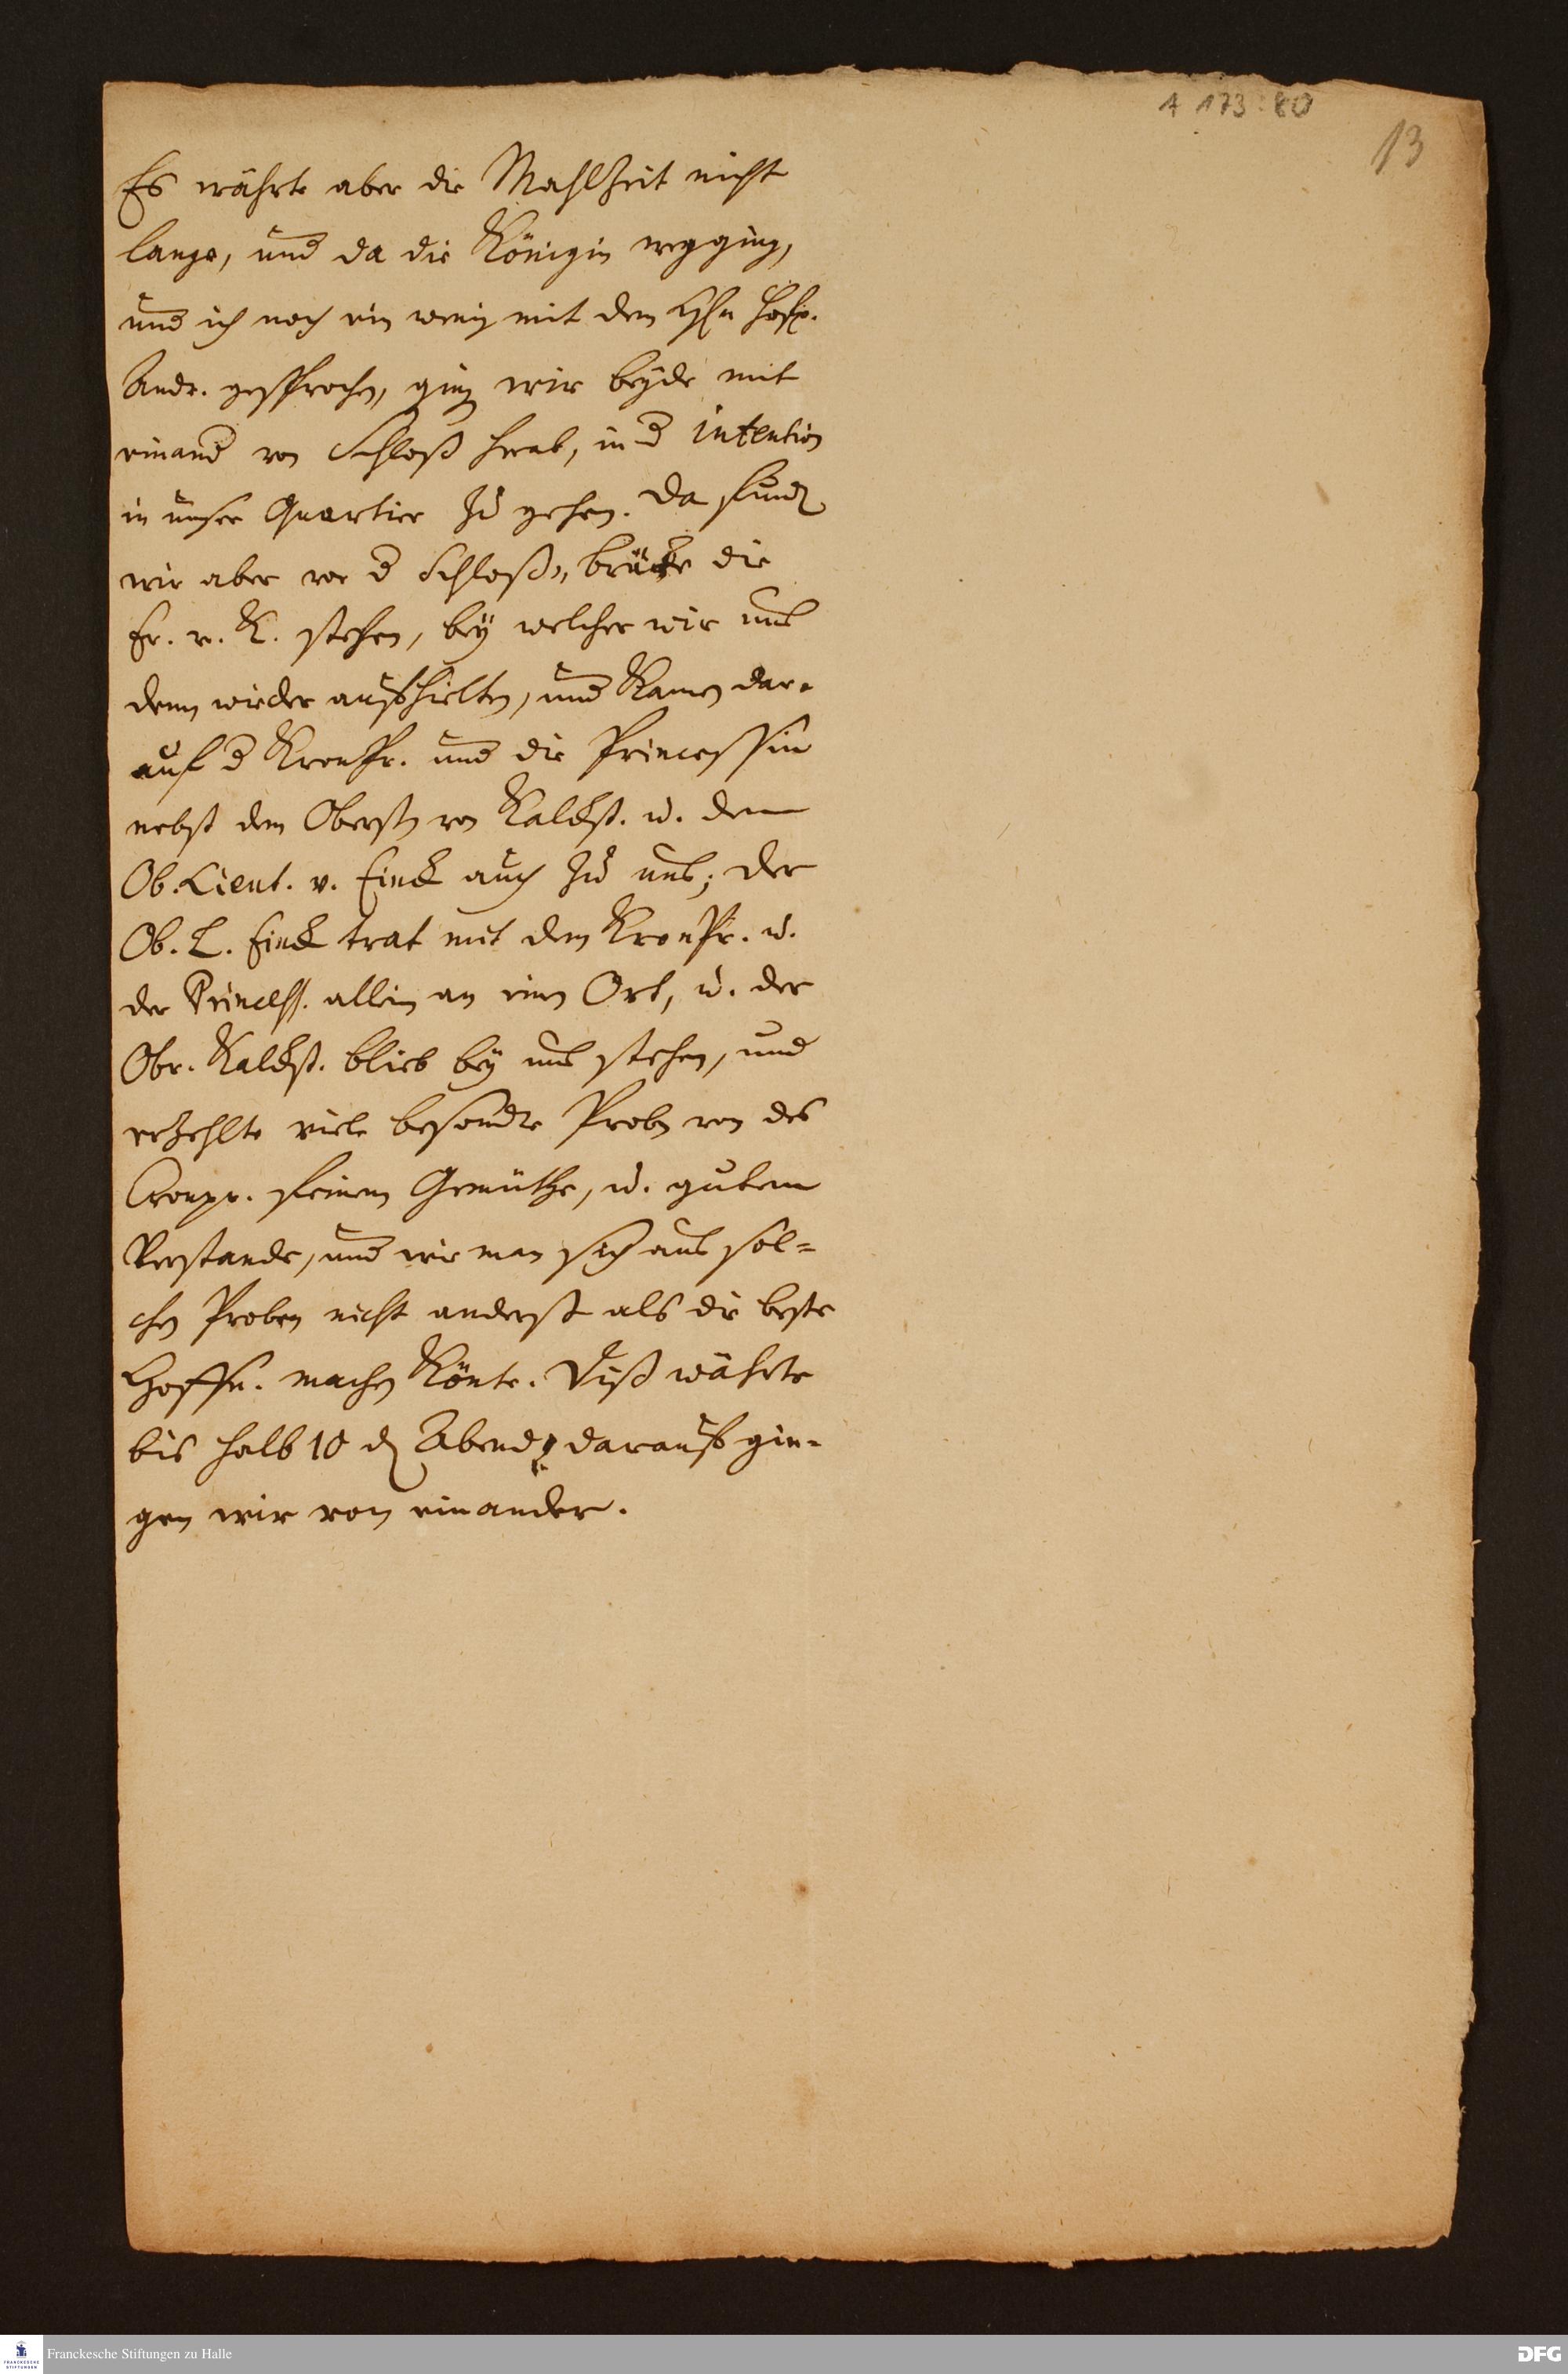 A 173:80
13
Es währte aber die Mahlzeit nicht
lange, und da die Königin wegging,
und ich noch ein wenig mit dem
Andr. gesprochen, ging wir beyde mit
einand von Schloß herab, in d intention
in unser Quartier zu gehen. Da fund
wir aber vor d Schloß-brücke die
Fr. v. K. stehen, bey welcher wir uns
denn wieder aufhielten, und kamen dar-
auf d KronPr. und die Princessin
nebst dem Oberstn von Kalckst. u. dem
Ob. Lieut. v. Finck auch zu uns; der
Ob. L. Finck trat mit dem KronPr. u.
der Princess. allein an einen Ort, u. der
Obr. Kalckst. blieb bey uns stehen, und
erzehlte viele besondre Proben von des
Cronpr. feinem Gemüthe, u. gutem
Verstande, und wie man sich aus sol=
chen Proben nicht anderst als die beste
Hoffn. machen könte. Diß währte
bis halb 10 Abends darauf gin-
gen wir von einander.
Franckesche Stiftungen zu Halle
DFG